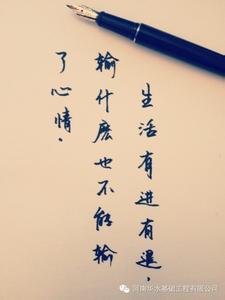 生活有进有退，
输什麽也不能输
了心情。
河南华水基础工程有限公司